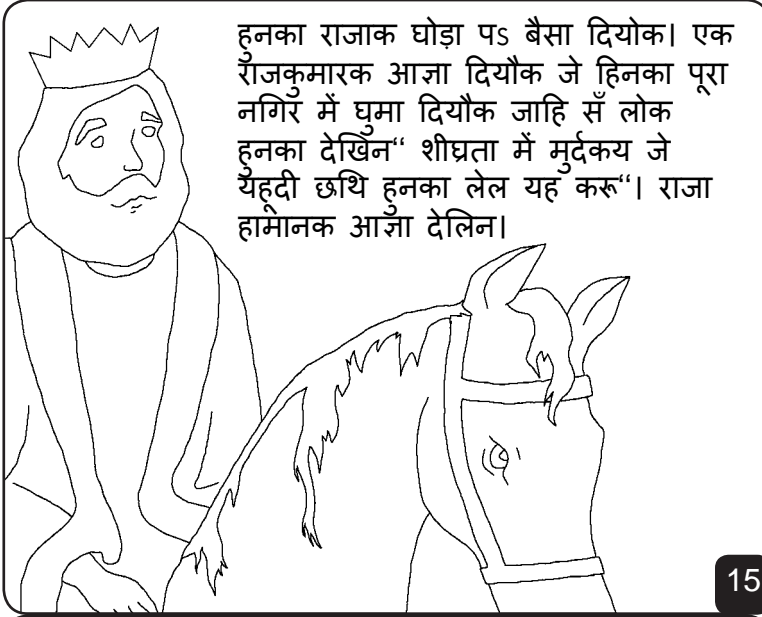 हुनका राजाक घोड़ा पऽ बैसा दियोक। एक
राजकुमारक आज्ञा दियौक जे हिनका पूरा
नगिर में घुमा दियौक जाहि सँ लोक
हुनका देखिन“ शीघ्रता में मुर्दकय जे
यहूदी छथि हुनका लेल यह करू“। राजा
हामानक आज्ञा देलिन।
15